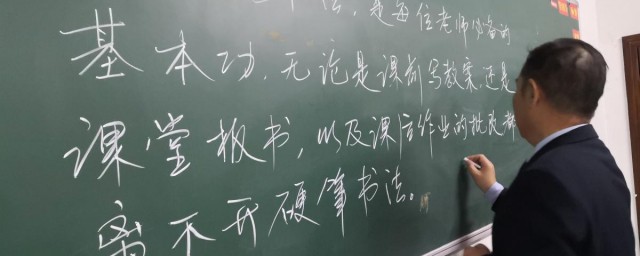 法，是每位老师必备的
基本功，无论是课前写教案，还是
课堂板书，以及课后作业的批改都
离不开硬笔书法。